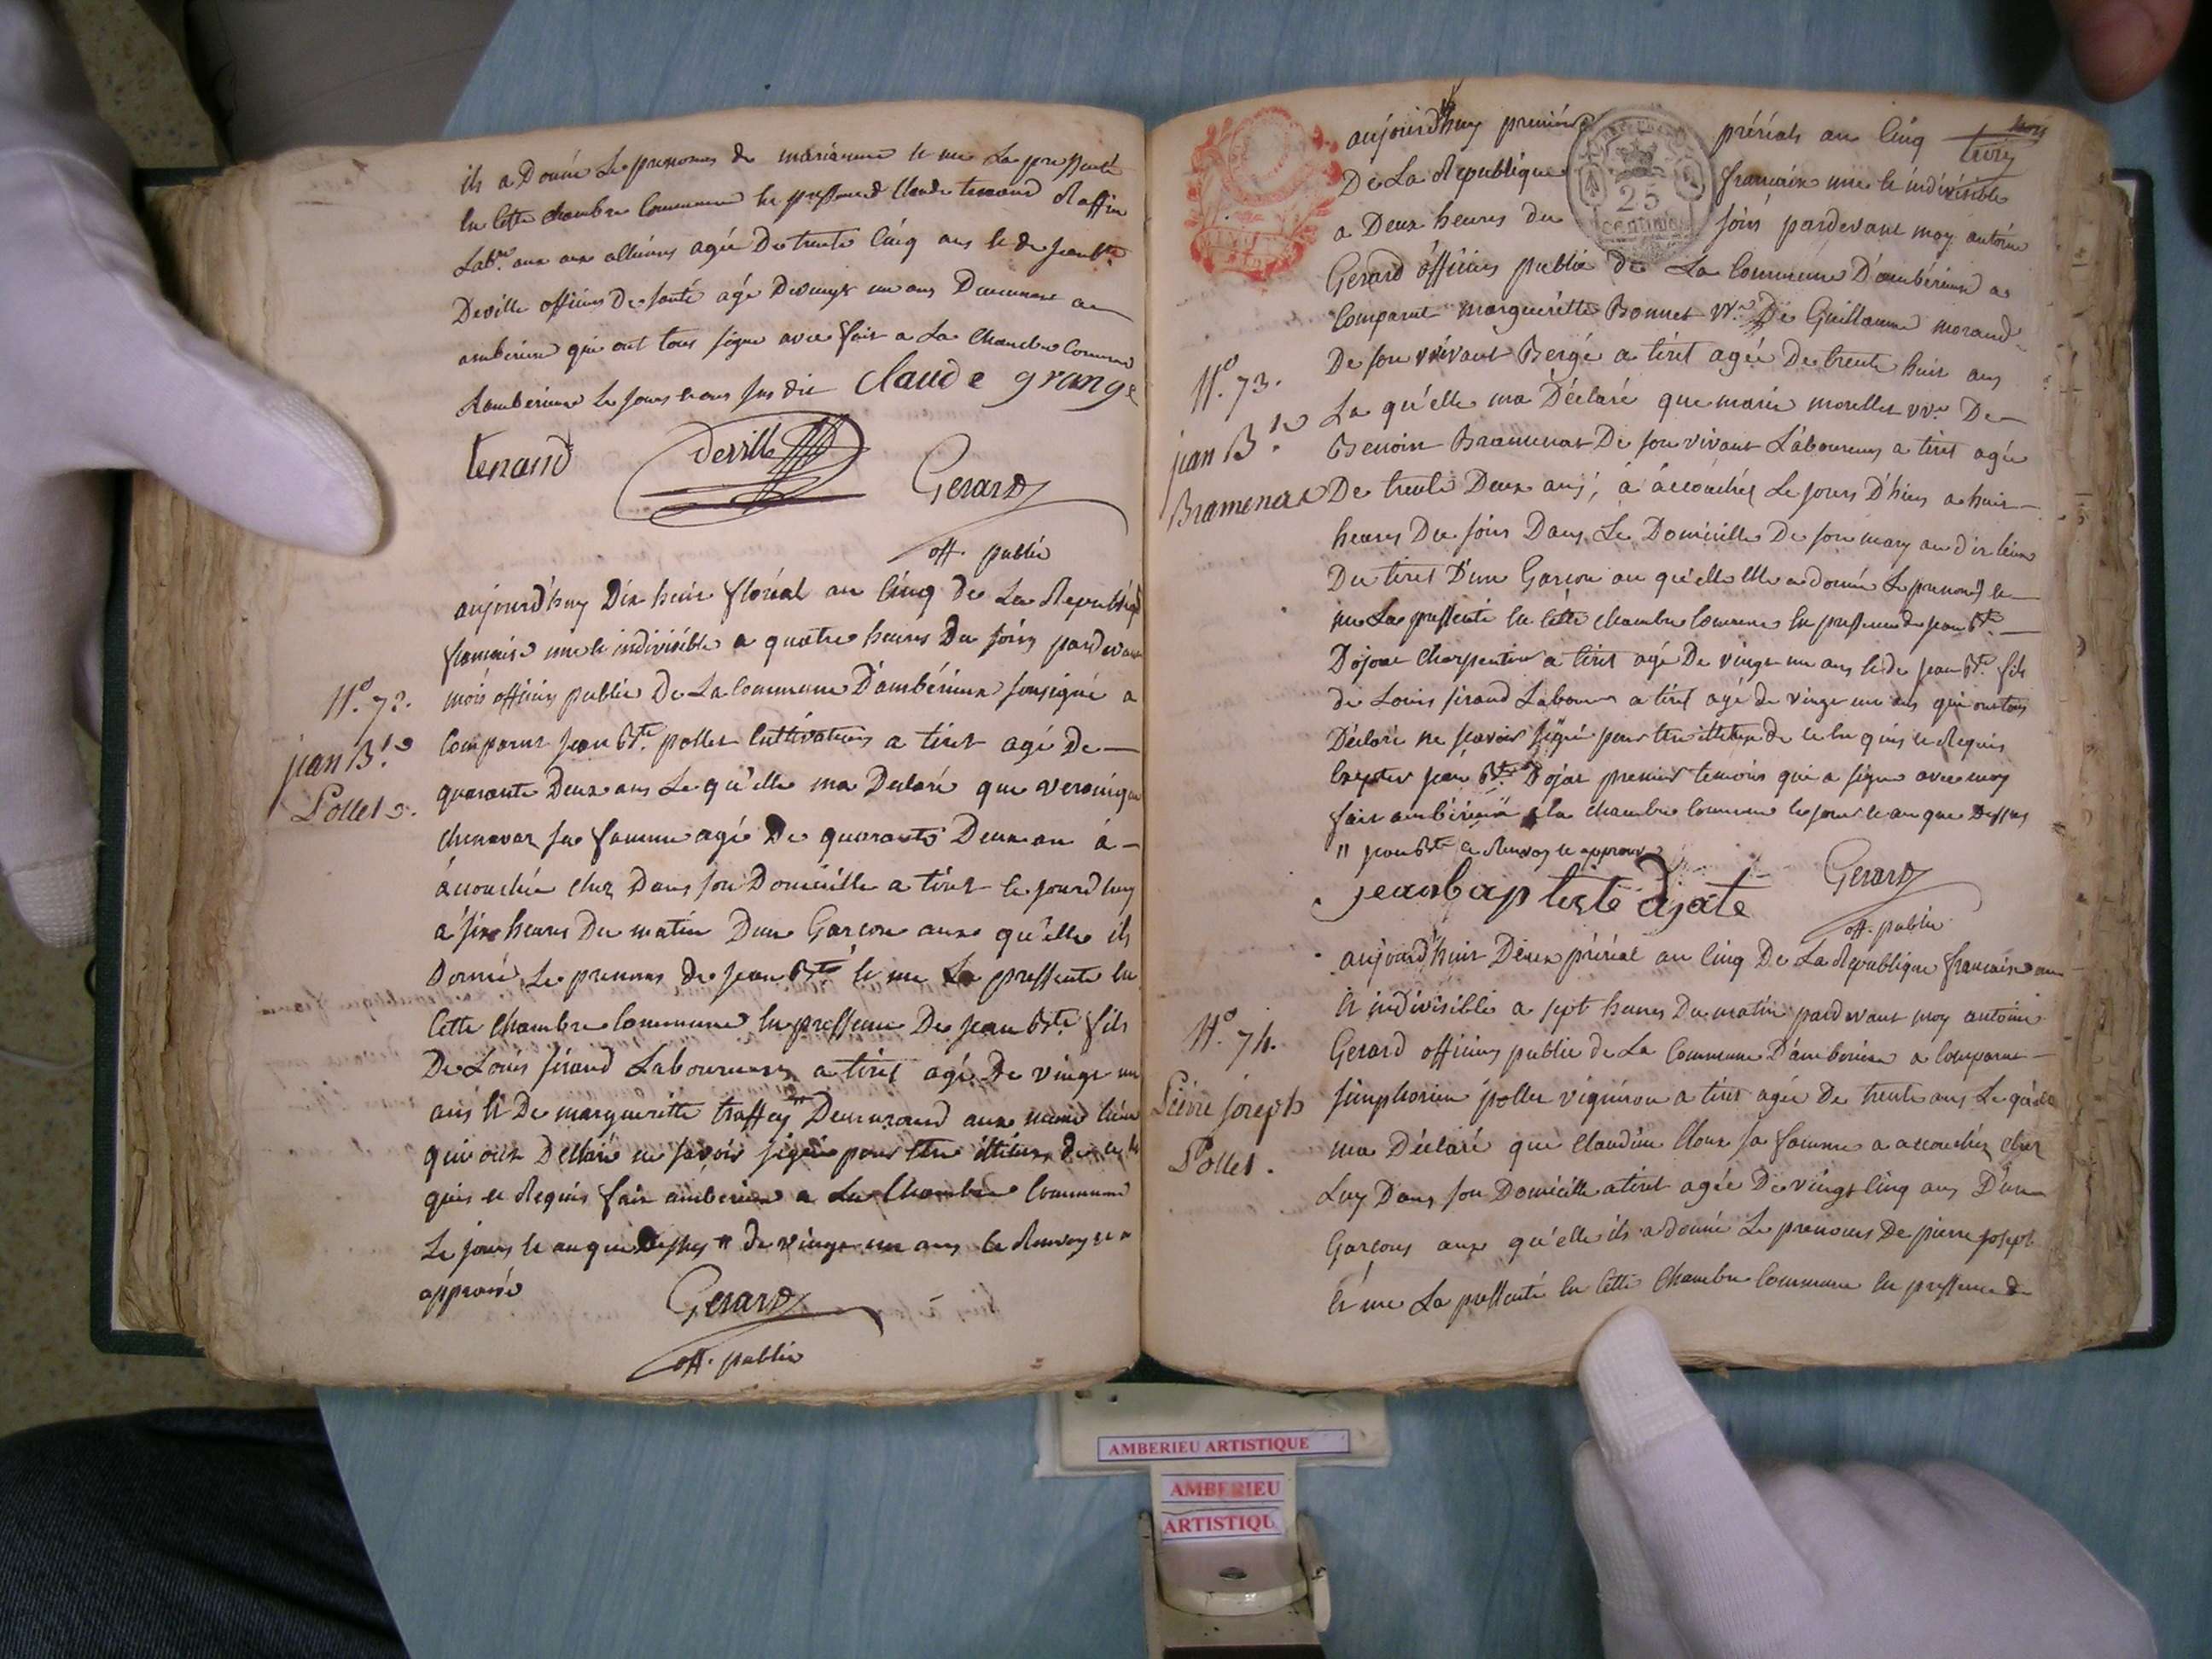 ils a Donné Le prenoms de marianne et me La pressenté
en Cette chambre Commune en pressence de Claude tenand Raffin
Lab.r aux allimes agée De trente Cinq ans et de jean b.te
Deville officiers De santé agé De vingt un ans Demeurant a
amberieux qui ont tous signé avec fait a La Chambre Commune
d'amberieux Le jours et ans sus dit Claude grange
tenand
deville
Gerard
off. public
aujourd'huy Dix huit floréal an Cinq de La Republiq
francaise une et indivisible a quatre heures Du soirs pardevant
N.o 72.
mois officiers public De La Commune D'ambérieux sousigné a
jean B.te
Comparut jean B.te pollet Cultivateurs a tiret agé De
Pollet.
quarante Deux ans Le qu'elle ma Declaré que veronique
chenavaz sa famme agé De quarante Deux an á
áccouchée chez Dans son Domicille a tiret le jourd'huy
á six heures Du matin D'un Garcon aux qu'elle ils
Donné Le prenoms de jean B.te et me La pressente en
Cette Chambre Commune en pressence De jean B.te fils
De Louis sirand Laboureurs a tiret agé De vingt un
ans et De marguerite traffey " Demeurand aux meme lieux
qui onts Declaré ne savoir signée pour être illiteré de ce
quis et Requis fait amberieux a La Chambre Commune
Le jours et an que Dessus " de vingt un ans le Renvoy et
approuvé
Gerard
off. public
aujourd'huy premier prérial an Cinq
De La Republique francaise une et indivisible
25
centimes
a Deux heures du soirs pardevant moy antoine
Gerard officiers public de La Commune D'ambérieux a
Comparut margueritte Bonnet vv.e De Guillaume morand
N.o 73.
De son vivant Bergé a tiret agée De trente huit ans
La qu'elle ma Déclaré que marie morellet vv.e De
jean B.te
Benoit Bramerat De son vivant Laboureurs a tiret agée
Bramerat
De trente Deux ans, á áccouchéz Le jours D'hier a huit
heures Du soirs Dans Le Domicille De son mary au dit lieux
Du tiret D'un Garcon au qu'elle Elle a donné Le prenoms et
me La pressenté en Cette chambre Commune en pressence de jean B.te
Dojat Charpentier a tiret agé De vingt un ans et de jean B.te fils
de Louis sirand Labour a tiret agé de vingt un ans qui ont tous
Déclaré ne savoir signé pour être illiteré de ce en quis et Requis
Excepter jean B.te Dojat premier temoins qui a signé avec moy
fait amberieux a la chambre Commune le jour et an que Dessus
" jean B.te le Renvoy et approuvé
jeanbaptiste djate
Gerard
off. public
aujourd'huit Deux prérial an Cinq De La Republique francaise une
et indivisible a sept heures Du matin pardevant moy antoine
N.o 74.
Gerard officiers public de La Commune D'amberieux a Comparut
Pierre joseph
simphorien pollet vigniron a tiret agée De trente ans Le qu'elle
Pollet.
ma Déclaré que Claudine Cloux sa famme a accouchéz chez
Luy Dans son Domicille a tiret agée De vingt Cinq ans D'un
Garcons aux qu'elle ils a donné Le prenoms De pierre joseph
Et me La pressenté en Cette Chambre Commune en pressence de
AMBERIEU ARTISTIQUE
AMBERIEU
ARTISTIQU